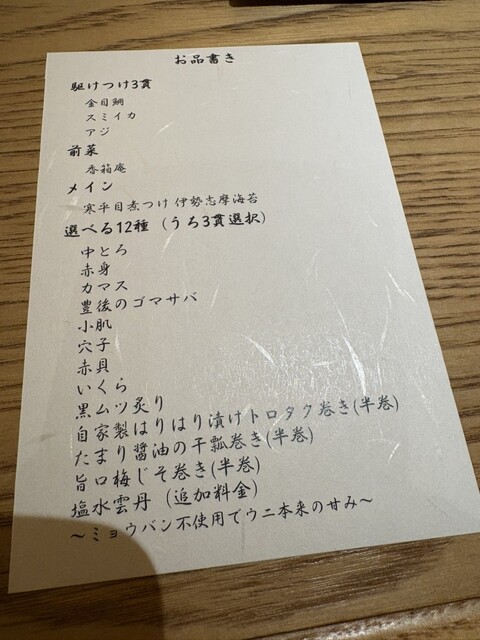 お品書き
駆けつけ3貫
金目鯛
スミイカ
アジ
前菜
香箱庵
メイン
寒平目煮つけ 伊勢志摩海苔
選べる12種 (うち3貫選択)
中とろ
赤身
カマス
豊後のゴマサバ
小肌
穴子
赤貝
いくら
黒ムツ炙り
自家製はりはり漬けトロタク巻き(半巻)
たまり醤油の干瓢巻き(半巻)
旨口梅じそ巻き(半巻)
塩水雲丹 (追加料金)
~ミョウバン不使用でウニ本来の甘み~